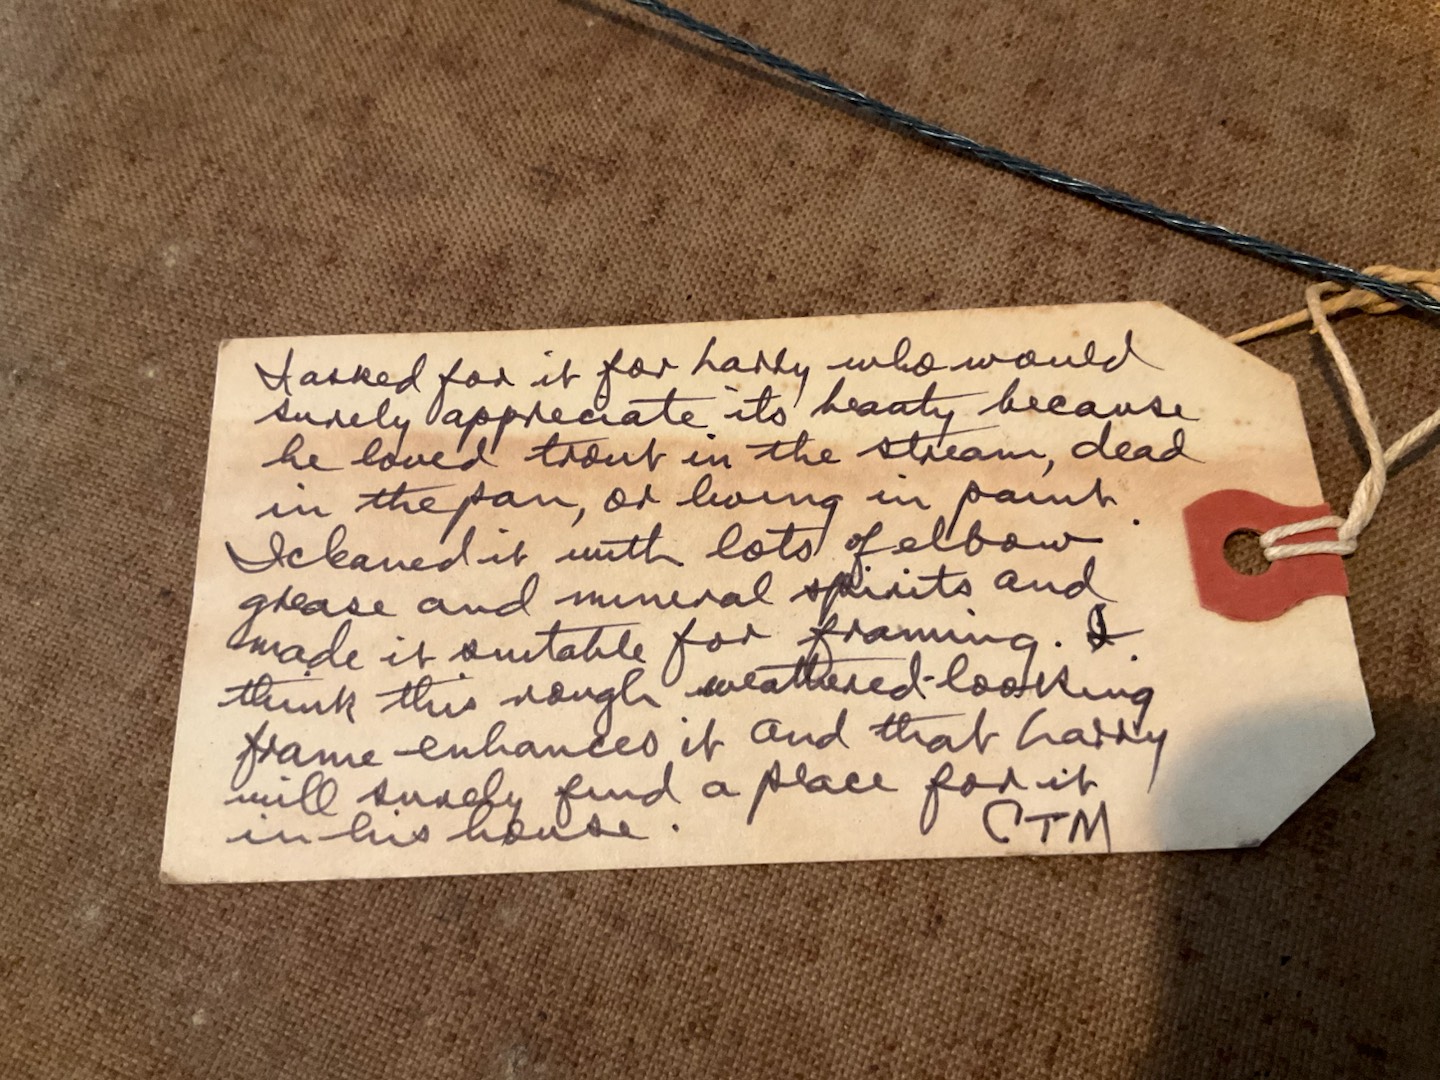 I asked for it for Harry who would
surely appreciate its beauty because
he loved trout in the stream, dead
in the pan, or living in paint.
I cleaned it with lots of elbow
grease and mineral spirits and
made it suitable for framing. I
think this rough weathered-looking
frame enhances it and that Harry
will surely find a place for it
in his house.
CTM